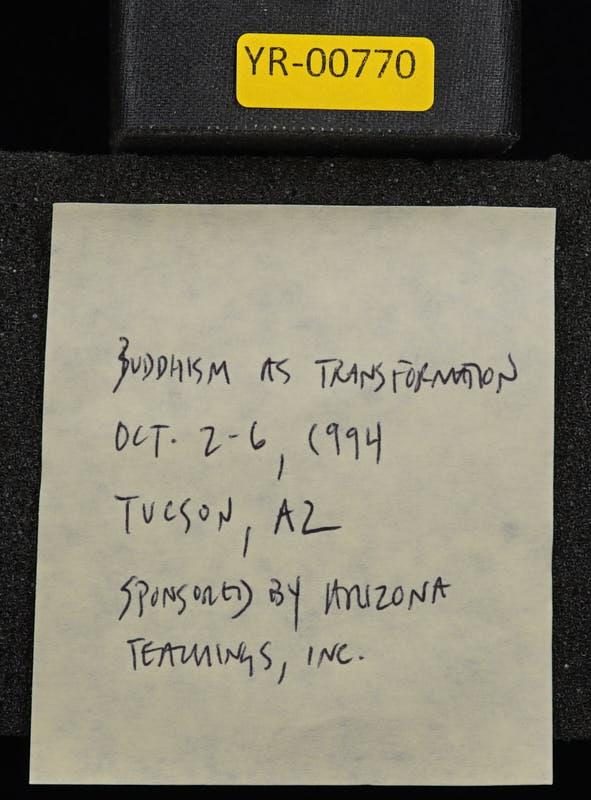 YR-00770
BUDDHISM AS TRANSFORMATION
OCT. 2-6, 1994
TUCSON, AZ
SPONSORED BY ARIZONA
TEACHINGS, INC.